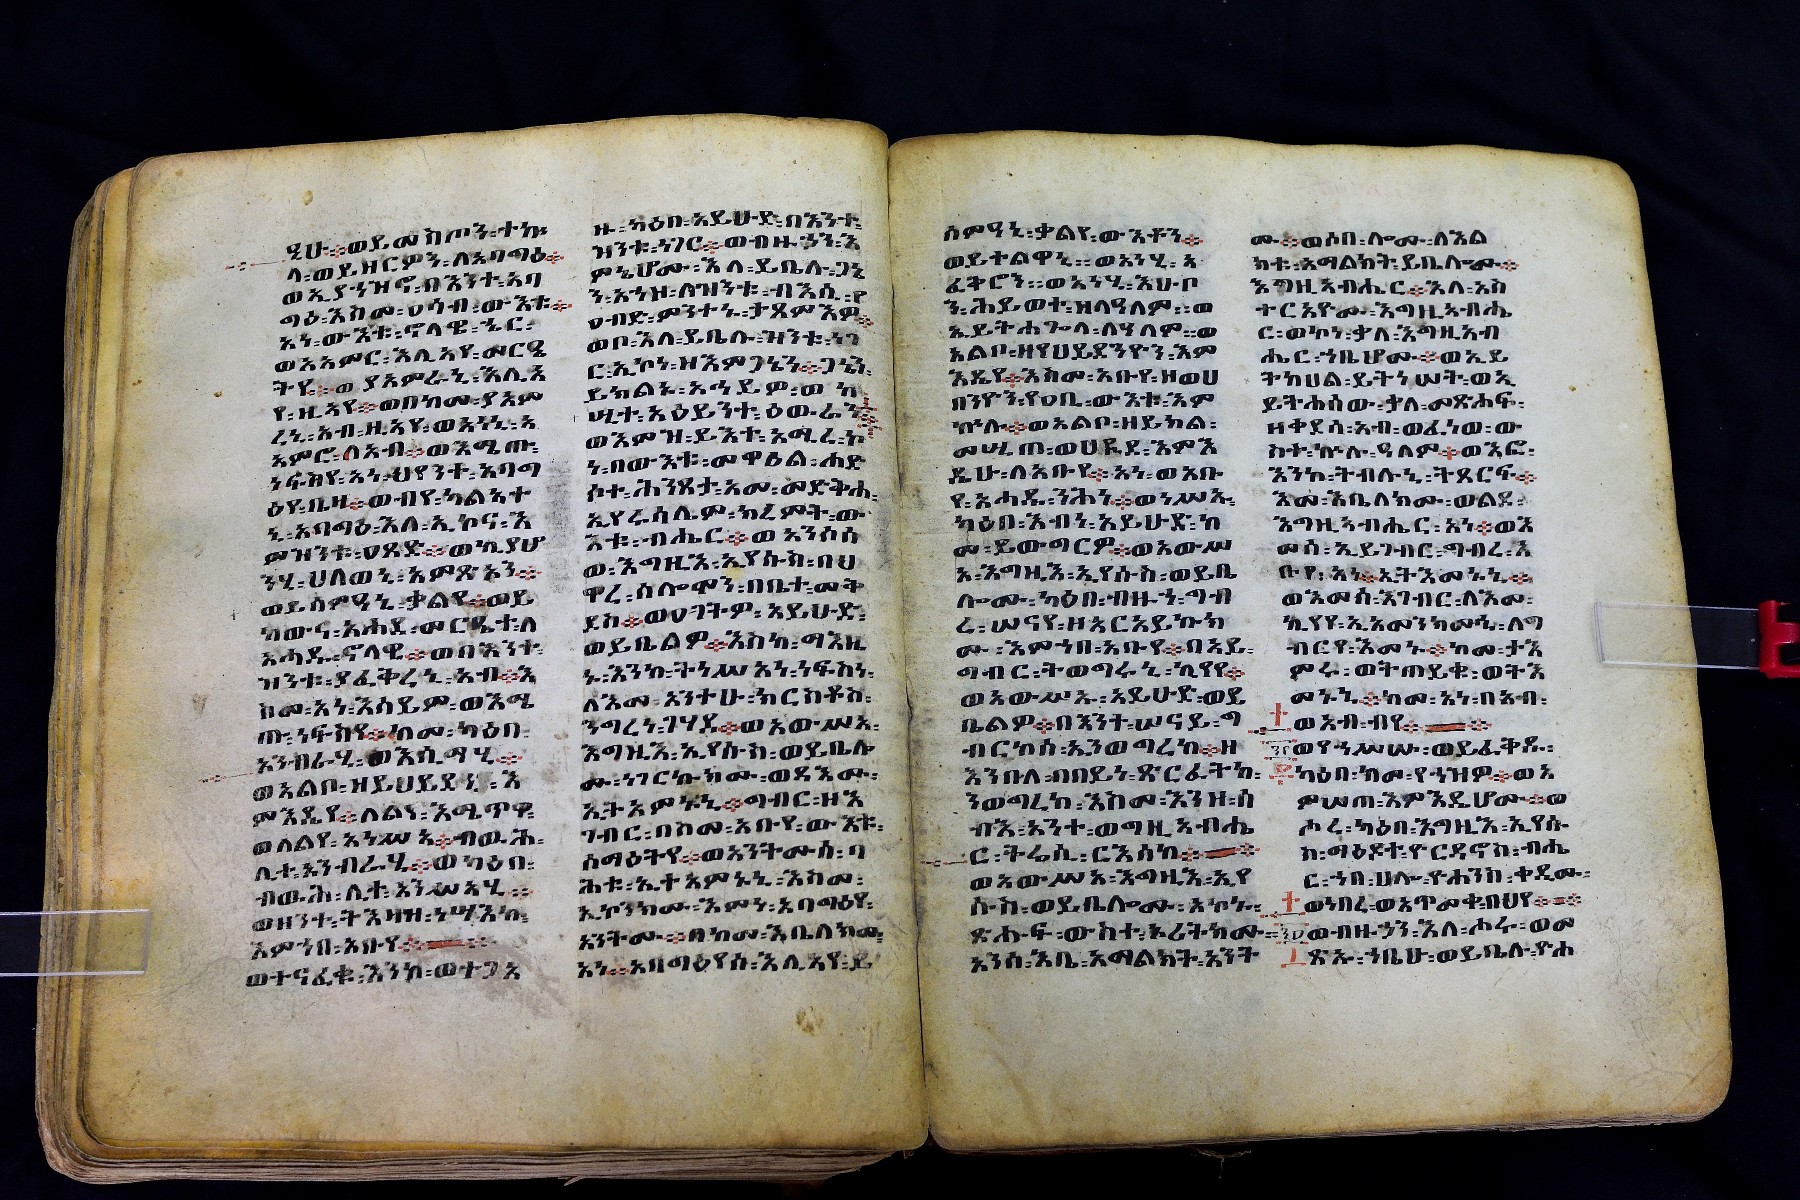 ዒሁ፡ ወይመስጦን፡ ተኵ
ላ፡ ወይዘርዎን፡ ለአባግዕ፡
ወኢያኀዝኖ፡ በእንተ፡ አባ
ግዕ፡ እስመ፡ ዐሳብ፡ ውእቱ፡
አነ፡ ውእቱ፡ ኖላዊ፡ ኄር፡
ወአአምር፡ እሊአየ፡ መርዔ
ትየ፡ ወያአምራኒ፡ እሊአ
የ፡ ዚአየ፡ ወበከመ፡ ያአም
ረኒ፡ አብ፡ ዚአየ፡ ወአነኒ፡ አ
አምሮ፡ ለአብ፡ ወእሜጡ፡
ነፍስየ፡ አነ፡ ህየንተ፡ አባግ
ዕየ፡ ቤዛ፡ ወብየ፡ ካልአተ
ኒ፡ አባግዕ፡ እለ፡ ኢኮና፡ እ
ምዝንቱ፡ ዐጸድ፡ ወኪያሆ
ንሂ፡ ሀለወኒ፡ አምጽኦን፡
ወይሰምዓኒ፡ ቃልየ፡ ወይ
ከውና፡ አሐደ፡ መርዔተ፡ ለ
አሓዱ፡ ኖላዊ፡ ወበእንተ፡
ዝንቱ፡ ያፈቅረኒ፡ አብ፡ እ
ስመ፡ አነ፡ እሰይም፡ ወእሜ
ጡ፡ ነፍስየ፡ ከመ፡ ካዕበ፡
አንብራሂ፡ ወእሲማሂ፡
ወአልቦ፡ ዘይሀይደኒ፡ እ
ምኔየ፡ ለልየ፡ እሜጥዋ፡
ወለልየ፡ አነሥኣ፡ ብዉሕ፡
ሊተ፡ አንብራሂ፡ ወካዕበ፡
ብዉሕ፡ ሊተ፡ አንሥኣሂ፡
ወዘንተ፡ ትእዛዘ፡ ነሣእኩ፡
እምኀበ፡ አቡየ፡
ወተናፈቁ፡ እንከ፡ ወተጋአ
ዙ፡ ካዕበ፡ አይሁድ፡ በእንተ፡
ዝንቱ፡ ነገር፡ ወብዙኃን፡ እ
ምኔሆሙ፡ እለ፡ ይቤሉ፡ ጋኔ
ን፡ አኀዞ፡ ለዝንቱ፡ ብእሲ፡ የ
ዐብድ፡ ምንተኑ፡ ታጸምእዎ፡
ወቦ፡ እለ፡ ይቤሉ፡ ዝንቱ፡ ነገ
ር፡ ኢኮነ፡ ዘእምጋኔን፡ ጋኔን፡
ይክልኑ፡ አኀይዎ፡ ወከ
ሢተ፡ አዕይንተ፡ ዕውራን፡
ወእምዝ፡ ይእተ፡ አሚረ፡ ኮ
ነ፡ በውእቱ፡ መዋዕል፡ ሐድ
ሶተ፡ ሕንጸታ፡ አመ፡ መድቅሐ፡
ኢየሩሳሌም፡ ክረምት፡ ው
እቱ፡ ብሔር፡ ወአንሶሰ
ወ፡ እግዚእ፡ ኢየሱስ፡ በህ
ዋረ፡ ሰሎሞን፡ በቤተ፡ መቅ
ደስ፡ ወዐገትዎ፡ አይሁድ፡
ወይቤልዎ፡ እስከ፡ ማእዜ
ኑ፡ እንከ፡ ትነሥእ፡ ነፍሰነ፡
ለእመ፡ አንተሁ፡ ክርስቶስ፡
ንግረነ፡ ገሃደ፡ ወአውሥአ፡
እግዚእ፡ ኢየሱስ፡ ወይቤሎ
ሙ፡ ነገርኩክሙ፡ ወዳእሙ፡
ኢትአምኑኒ፡ ግብር፡ ዘእ
ገብር፡ በስመ፡ አቡየ፡ ውእቱ፡
ሰማዕትየ፡ ወአንትሙሰ፡ ባ
ሕቱ፡ ኢተአምኑኒ፡ እስመ፡
ኢኮንክሙ፡ እምነ፡ አባግዕየ፡
አንትሙ፡ በከመ፡ እቤለክሙ፡
አነ፡ አባግዕየሰ፡ እሊአየ፡ ይ
ሰምዓኒ፡ ቃልየ፡ ውእቶን፡
ወይተልዋኒ፡ ወአነሂ፡ ኣ
ፈቅሮን፡ ወአነሂ፡ እሁቦ
ን፡ ሕይወተ፡ ዘለዓለም፡ ወ
ኢይትሐጐላ፡ ለዓለም፡ ወ
አልቦ፡ ዘየሀይደንዮን፡ እም
እዴየ፡ እስመ፡ አቡየ፡ ዘወሀ
በንዮን፡ የዐቢ፡ ውእቱ፡ እም
ኵሉ፡ ወአልቦ፡ ዘይክል፡
መሢጠ፡ ወሀዪደ፡ እምእ
ዴሁ፡ ለአቡየ፡ አነ፡ ወአቡ
የ፡ አሓዱ፡ ንሕነ፡ ወነሥኡ፡
ካዕበ፡ እብነ፡ አይሁድ፡ ከ
መ፡ ይውግርዎ፡ ወአውሥ
አ፡ እግዚእ፡ ኢየሱስ፡ ወይቤ
ሎሙ፡ ካዕበ፡ ብዙኀ፡ ግብ
ረ፡ ሠናየ፡ ዘአርአይኩክ
ሙ፡ እምኀበ፡ አቡየ፡ በአይ፡
ግብር፡ ትወግሩኒ፡ ኪየየ፡
ወአውሥኡ፡ አይሁድ፡ ወይ
ቤልዎ፡ በእንተ፡ ሠናይ፡ ግ
ብርከሰ፡ አንወግረከ፡ ዘ
እንበለ፡ በበይነ፡ ጽርፈትከ፡
ንወግረከ፡ እስመ፡ እንዘ፡ ሰ
ብእ፡ አንተ፡ ወግዚአብሔ
ር፡ ትሬሲ፡ ርእሰከ፡
ወአውሥአ፡ እግዚእ፡ ኢየ
ሱስ፡ ወይቤሎሙ፡ አኮኑ፡
ጽሑፍ፡ ውስተ፡ ኦሪትክሙ፡
አንሰ፡ እቤ፡ አማልክት፡ አንት
ሙ፡ ወሶበ፡ ሎሙ፡ ለእል
ክቱ፡ አማልክት፡ ይቤሎሙ፡
እግዚአብሔር፡ እለ፡ አስ
ተርአዮሙ፡ እግዚአብሔ
ር፡ ወኮነ፡ ቃለ፡ እግዚአብ
ሔር፡ ኀቤሆሙ፡ ወኢይ
ትከሀል፡ ይትነሠት፡ ወኢ
ይትሐሰው፡ ቃለ፡ መጽሐፍ፡
ዘቀደሰ፡ አብ፡ ወፈነወ፡ ው
ስተ፡ ኵሉ፡ ዓለም፡ ወእፎ፡
እንከ፡ ትብሉኒ፡ ትጸርፍ፡
እመ፡ እቤለክሙ፡ ወልደ፡
እግዚአብሔር፡ አነ፡ ወእ
መሰ፡ ኢይገብር፡ ግብረ፡ አ
ቡየ፡ አነ፡ ኢትእመኑኒ፡
ወእመሰ፡ እገብር፡ ለእመ፡
ኪየየ፡ ኢአመንክሙኒ፡ ለግ
ብርየ፡ እመኑ፡ ከመ፡ ታእ
ምሩ፡ ወትጠይቁ፡ ወትእ
መኑኒ፡ ከመ፡ አነ፡ በአብ፡
ወአብ፡ ብየ፡
ወየኀሥሡ፡ ወይፈቅዱ፡
ካዕበ፡ ከመ፡ የኀዝዎ፡ ወአ
ምሠጠ፡ እምእዴሆሙ፡ ወ
ሖረ፡ ካዕበ፡ እግዚእ፡ ኢየሱ
ስ፡ ማዕዶተ፡ ዮርዳኖስ፡ ብሔ
ር፡ ኀበ፡ ሀሎ፡ ዮሐንስ፡ ቀዲሙ፡
ወነበረ፡ ወአጥመቀ፡ በህየ፡
ወብዙኃን፡ እለ፡ ሖሩ፡ ወመ
ጽኡ፡ ኀቤሁ፡ ወይቤሉ፡ ዮሐ